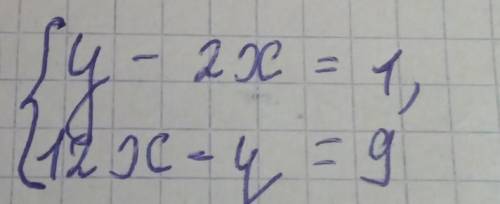 y - 2x = 1,
12x - y = 9